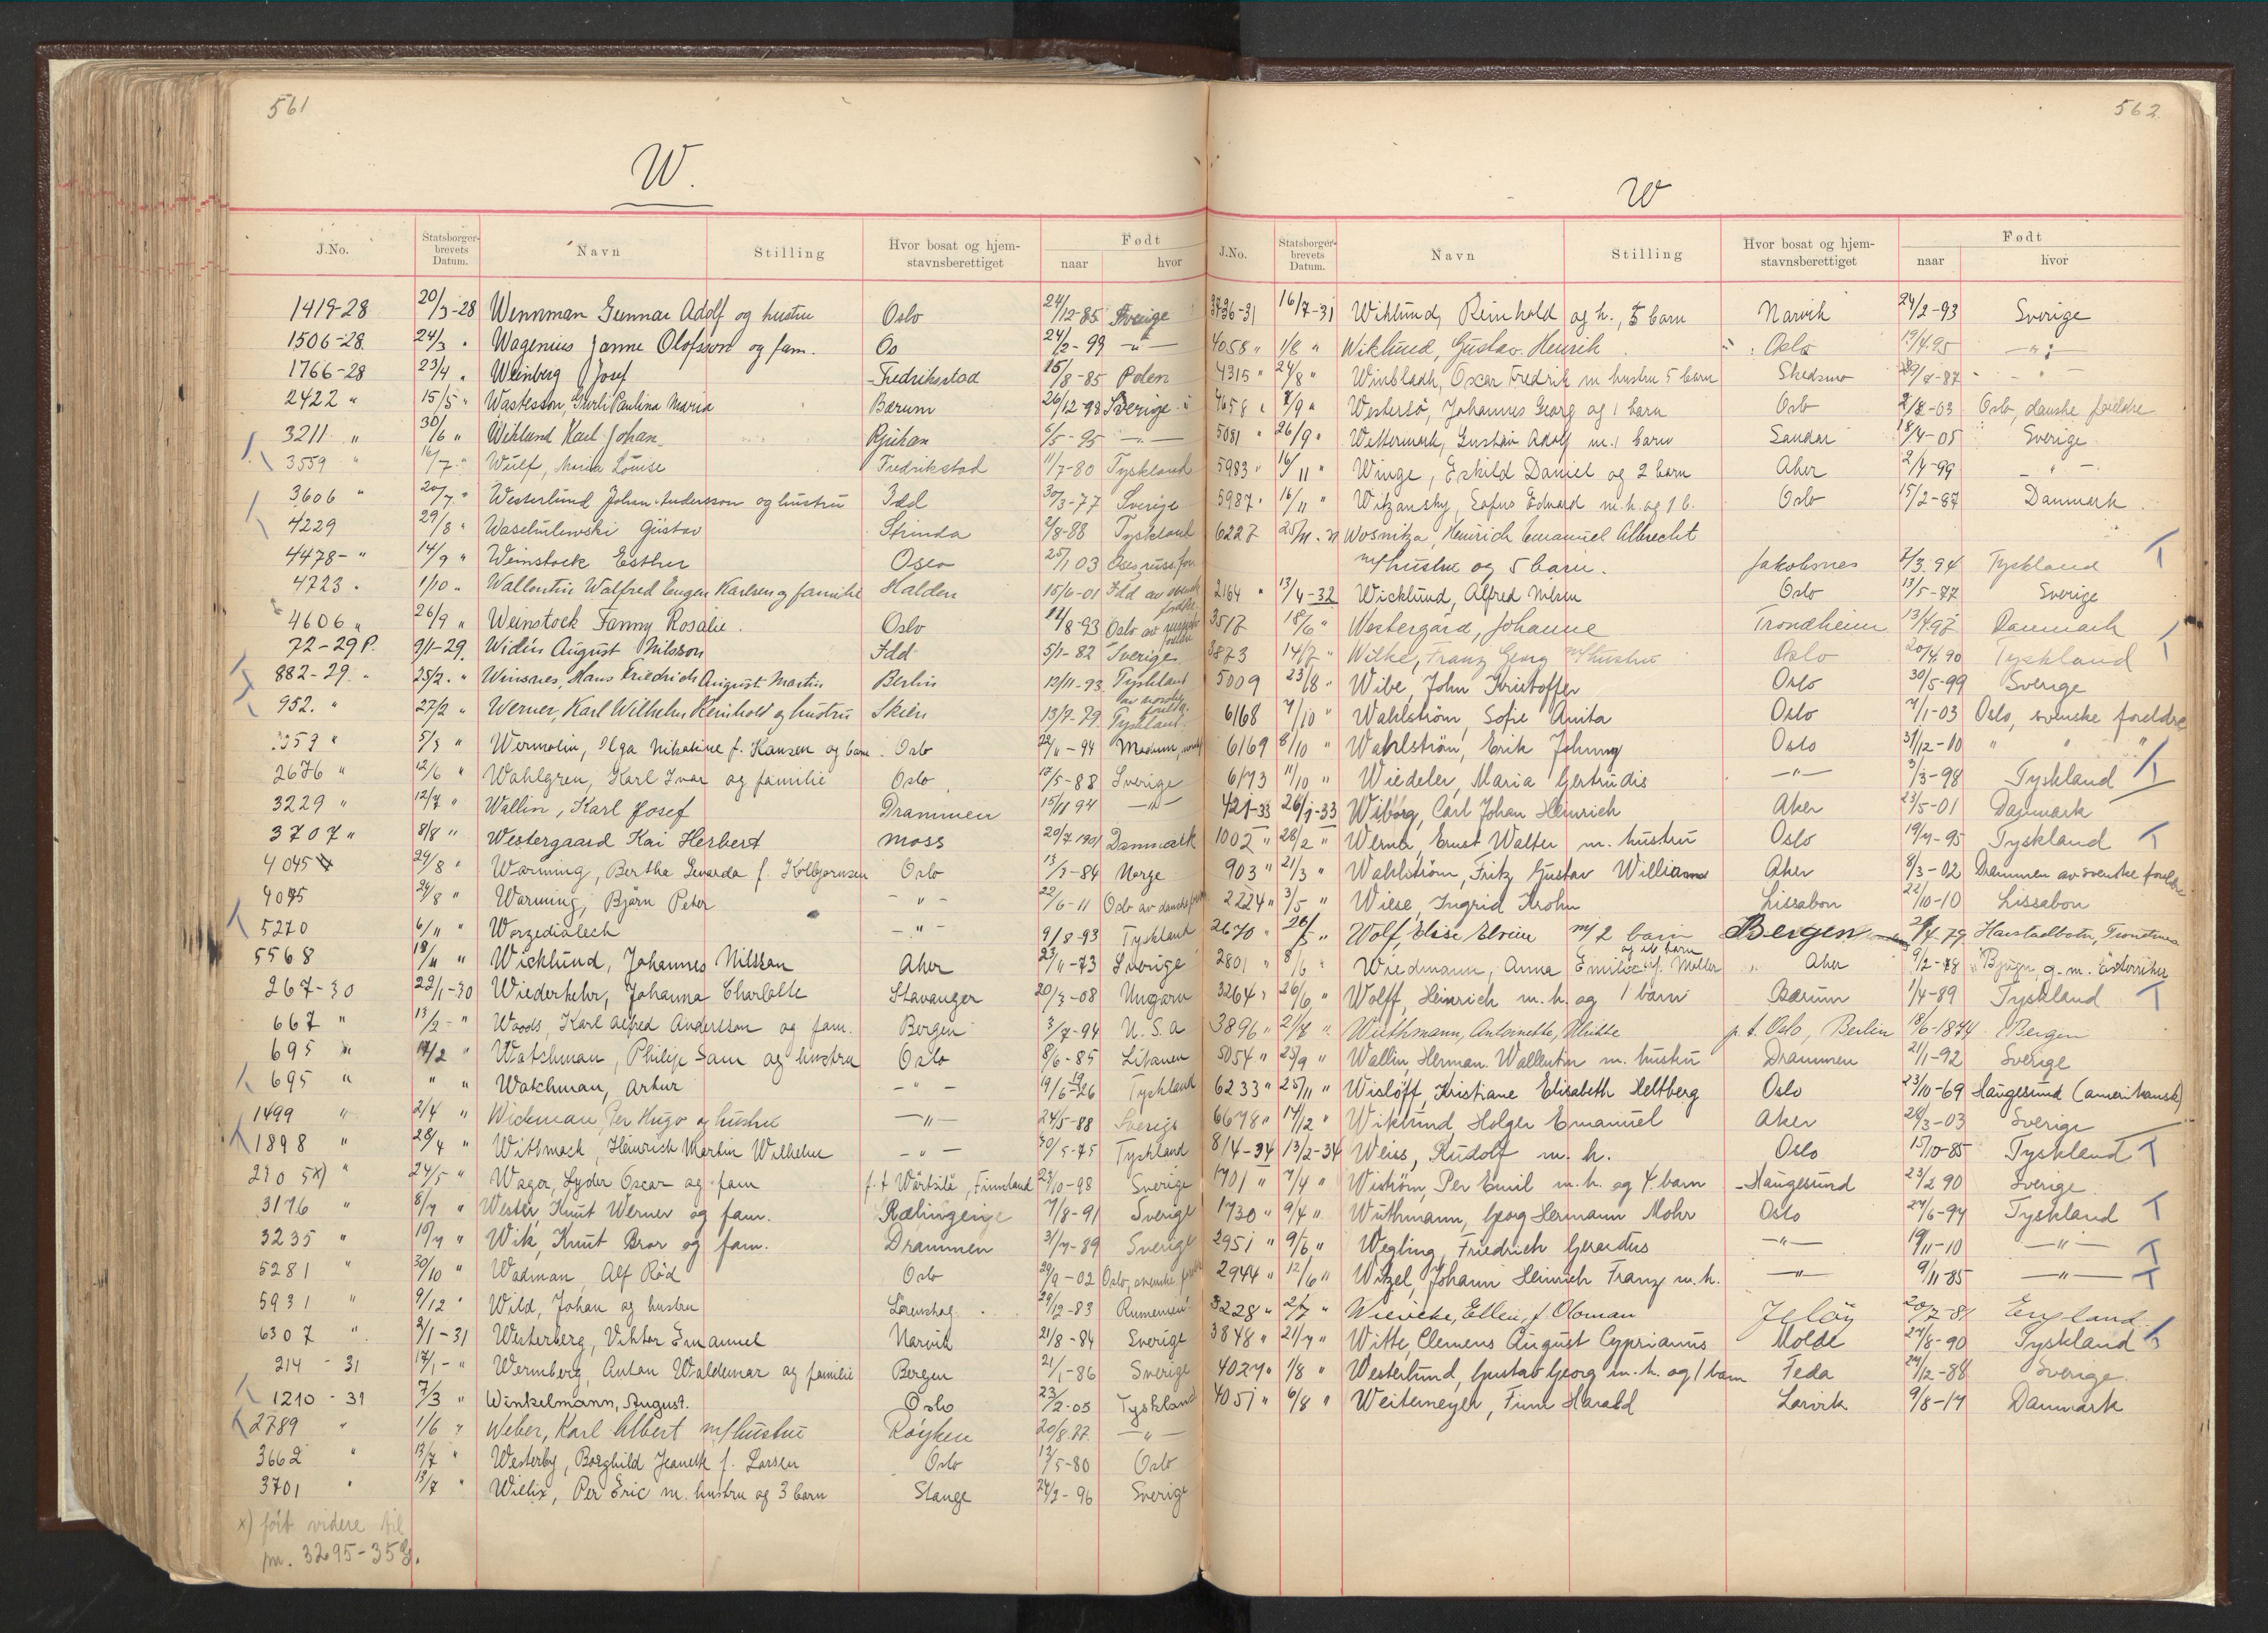 561
W.
J.No. Statsborger-brevets Datum. Navn Stilling Hvor bosat og hjem-stavnsberettiget Født naar hvor
1419-28 20/3-28 Wennman Gunnar Adolf og hustru Oslo 24/12-85 Sverige
1506-28 24/3 " Wagenius Janne Olofsson og fam. Os 24/2-99 -"-
1766-28 23/4 " Weinberg Josef Fredrikstad 15/8-85 Polen
2422 " 15/5 " Wastesson, Gurli Paulina Maria Bærum 26/12-98 Sverige
3211 " 30/6 " Wiklund Karl Johan Rjukan 6/5-95 -"-
3559 " 16/7 " Wulf, Maria Louise Fredrikstad 11/7-80 Tyskland
3606 " 20/7 " Westerlund Johan Andersson og hustru Idd 30/3-77 Sverige
4229 29/8 " Waschulewski Gustav Strinda 2/8-88 Tyskland
4478-" 14/9 " Weinstock Esther Oslo 25/1 03 Oslo russ. for
4723 " 1/10 " Wallentin Walfred Eugen Karlsen og familie Halden 15/6-01 Idd av svensk foreldre
4606 " 26/9 " Weinstock Fanny Rosalie. Oslo 14/8-93 Oslo av russiske foreldre
72-29 P. 9/1-29 Widén August Nilsson Idd 5/1-82 Sverige
882-29 " 25/2 " Winsnes, Hans Friedrich August Martin Berlin 12/11-93 Tyskland av norske foreldr.
952. " 27/2 " Werner, Karl Wilhelm Reinhold og hustru Skien 13/7-79 Tyskland
959 " 5/3 " Wermelin, Olga Nikoline f. Hansen og barn Oslo 22/11-94 Modum, norsk
2676 " 12/6 " Wahlgren, Karl Ivar og familie Oslo 17/5-88 Sverige
3229 " 12/7 " Wallin, Karl Josef Drammen 15/11 94 -"-
3707 " 8/8 " Westergaard Kai Herbert Moss 20/7 1901 Danmark
4045 29/8 " Warming, Bertha Levarda f. Kolbjørnsen Oslo 13/3-84 Norge
4095 29/8 " Warming, Bjørn Peter -"- 22/6-11 Oslo av danske for
5270 6/11 " Worzedialeck -"- 9/8-93 Tyskland
5568 18/11 " Wicklund, Johannes Nilsson Aker 23/11-73 Sverige
267-30 22/1-30 Wiederkehr, Johanna Charlotte Stavanger 20/3-08 Ungarn
667 " 13/2-" Woods, Karl Alfred Andersson og fam. Bergen 3/7-94 U.S.A
695 " 14/2 " Watchman, Philip Sam og hustru Oslo 8/6-85 Litauen
695 " " " Watchman, Artur -"- 19/6-1926 Tyskland
1499 " 2/4 " Wickman, Per Hugo og hustru -"- 24/5-88 Sverige
1898 " 28/4 " Wittmack, Heinrich Martin Wilhelm -"- 30/5-75 Tyskland
2105x) " 24/5 " Wager, Lyder Oscar og fam f.t Wärtsilä, Finnland 23/10-98 Sverige
3176 " 8/7 " Wester, Knut Werner og fam. Rælingen 7/8-91 Sverige
3235 " 10/7 " Wik, Knut Bror og fam. Drammen 31/7-89 Sverige
5281 " 30/10 " Wadman, Alf Röd Oslo 29/9-02 Oslo, svenske foreldr
5931 " 9/12 " Wild, Johan og hustru Lørenskog 29/12-83 Rumenien
6307 " 2/1-31 Westerberg, Viktor Emanuel Narvik 21/8-84 Sverige
214-31 17/1-" Wermberg, Anton Waldemar og familie Bergen 21/1-86 Sverige
1210-31 7/3 " Winkelmann, August. Oslo 23/2-05 Tyskland
2789 " 1/6 " Weber, Karl Albert m/hustru Røyken 20/8.77 -"-
3662 " 13/7 " Westerby, Borghild Jeanette f. Larsen Oslo 13/5-80 Oslo
3701 " 13/7 " Willix, Per Eric m. hustru og 3 barn Stange 24/2-96 Sverige
x) ført videre til
pn. 3295-35 J.
562
W
J.No. Statsborger-brevets Datum. Navn Stilling Hvor bosat og hjem-stavnsberettiget Født naar hvor
3736-31 16/7-31 Wiklund, Reinhold og h., 5 barn Narvik 24/2-93 Sverige
4058 " 1/8 " Wiklund, Gustav Henrik Oslo 19/4.95 -"-
4315 " 24/8 " Winbladh, Oscar Fredrik m hustru 5 barn Skedsmo 29/7-87 -"-
4658 " 7/9 " Westersö, Johannes Georg og 1 barn Oslo 2/8-03 Oslo, danske foreldre
5081 " 26/9 " Wettermark, Gustav Adolf m. 1 barn Sandar 18/4-05 Sverige
5983 " 16/11 " Winge, Eskild Daniel og 2 barn Aker 2/4-99 -"-
5987 " 16/11 " Witzansky, Sofus Edvard m.h. og 1 b. Oslo 15/2-87 Danmark
6227 25/11-" Wosnitza, Heinrich Emanuel Albrecht
m/hustru og 5 barn. Jakobsnes 7/3.94 Tyskland
2164 " 13/4-32 Wicklund, Alfred Nilsen Oslo 13/5-77 Sverige
3517 18/6 " Westergård, Johanne Trondheim 13/4.97 Danmark
3873 14/7 " Wilke, Franz Georg m/hustru Oslo 20/4.90 Tyskland
5009 23/8 " Wibe, John Kristoffer Oslo 30/5-99 Sverige
6168 7/10 " Wahlström, Sofie Anita Oslo 7/1-03 Oslo, svenske foreldre
6169 8/10 " Wahlström, Erik Johnny Oslo 31/12-10 " " "
6173 11/10 " Wiedeler, Maria Gertrudis -"- 3/3-98 Tyskland
421-33 26/1-33 Wiborg, Carl Johan Heinrich Aker 23/5-01 Danmark
1002 " 28/2 " Werner, Ernst Walter m. hustru Oslo 19/7-95 Tyskland
903 " 21/3 " Wahlström, Fritz Gustav William Aker 8/3-02 Drammen av svenske foreldre
2224 " 3/5 " Wiese, Ingrid Krohn Lissabon 22/10-10 Lissabon
2670 " 26/5 " Wolf, Elise Elvine m/ 2 barn Bergen 29/4-79 Harstadbotn, Trondenes
2801 " 8/6 " Wiedmann, Anna Emilie f. Møller og 1 barn Aker 9/2-78 Bjugn, g.m. Østerriker
3264 " 26/6 " Wolff, Heinrich m. h. og 1 barn Bærum 1/4-89 Tyskland
3896 " 21/8 " Wiethmann, Antoinette, Ulrikke p.t. Oslo, Berlin 18/6-1874 Bergen
5054 " 25/9 " Wallin, Herman Wallentin m. hustru Drammen 21/1-92 Sverige
6233 " 25/11 " Wisløff, Kristiane Elisabeth Heltberg Oslo 23/10-69 Haugesund (amerikansk)
6678 " 14/12 " Wiklund, Holger Emanuel Aker 28/3-03 Sverige
814-34 13/2-34 Weiss, Rudolf m. h. Oslo 15/10-85 Tyskland
1701 " 7/4 " Wiström, Per Emil m. h. og 4. barn Haugesund 23/2 90 Sverige
1730 " 9/4 " Wuthmann, Georg Hermann Mohr Oslo 24/6-94 Tyskland
2951 " 9/6 " Wegling, Friedrich Gerardus -"- 19/11-10 -"-
2944 " 12/6 " Witzel, Johann Heinrich Franz m.h. -"- 9/11-85 -"-
3228 " 2/7 " Wievicke, Ellen, f. Oloman Jeløy 20/7-81 England
3848 " 21/7 " Witte, Clemens August Cyprianus Molde 24/8-90 Tyskland
4027 " 1/8 " Westerlund, Gustav Georg m. h. og 1 barn Feda 24/12-88 Sverige.
4051 " 6/8 " Weitemeyer, Finn Harald Larvik 9/8-14 Danmark